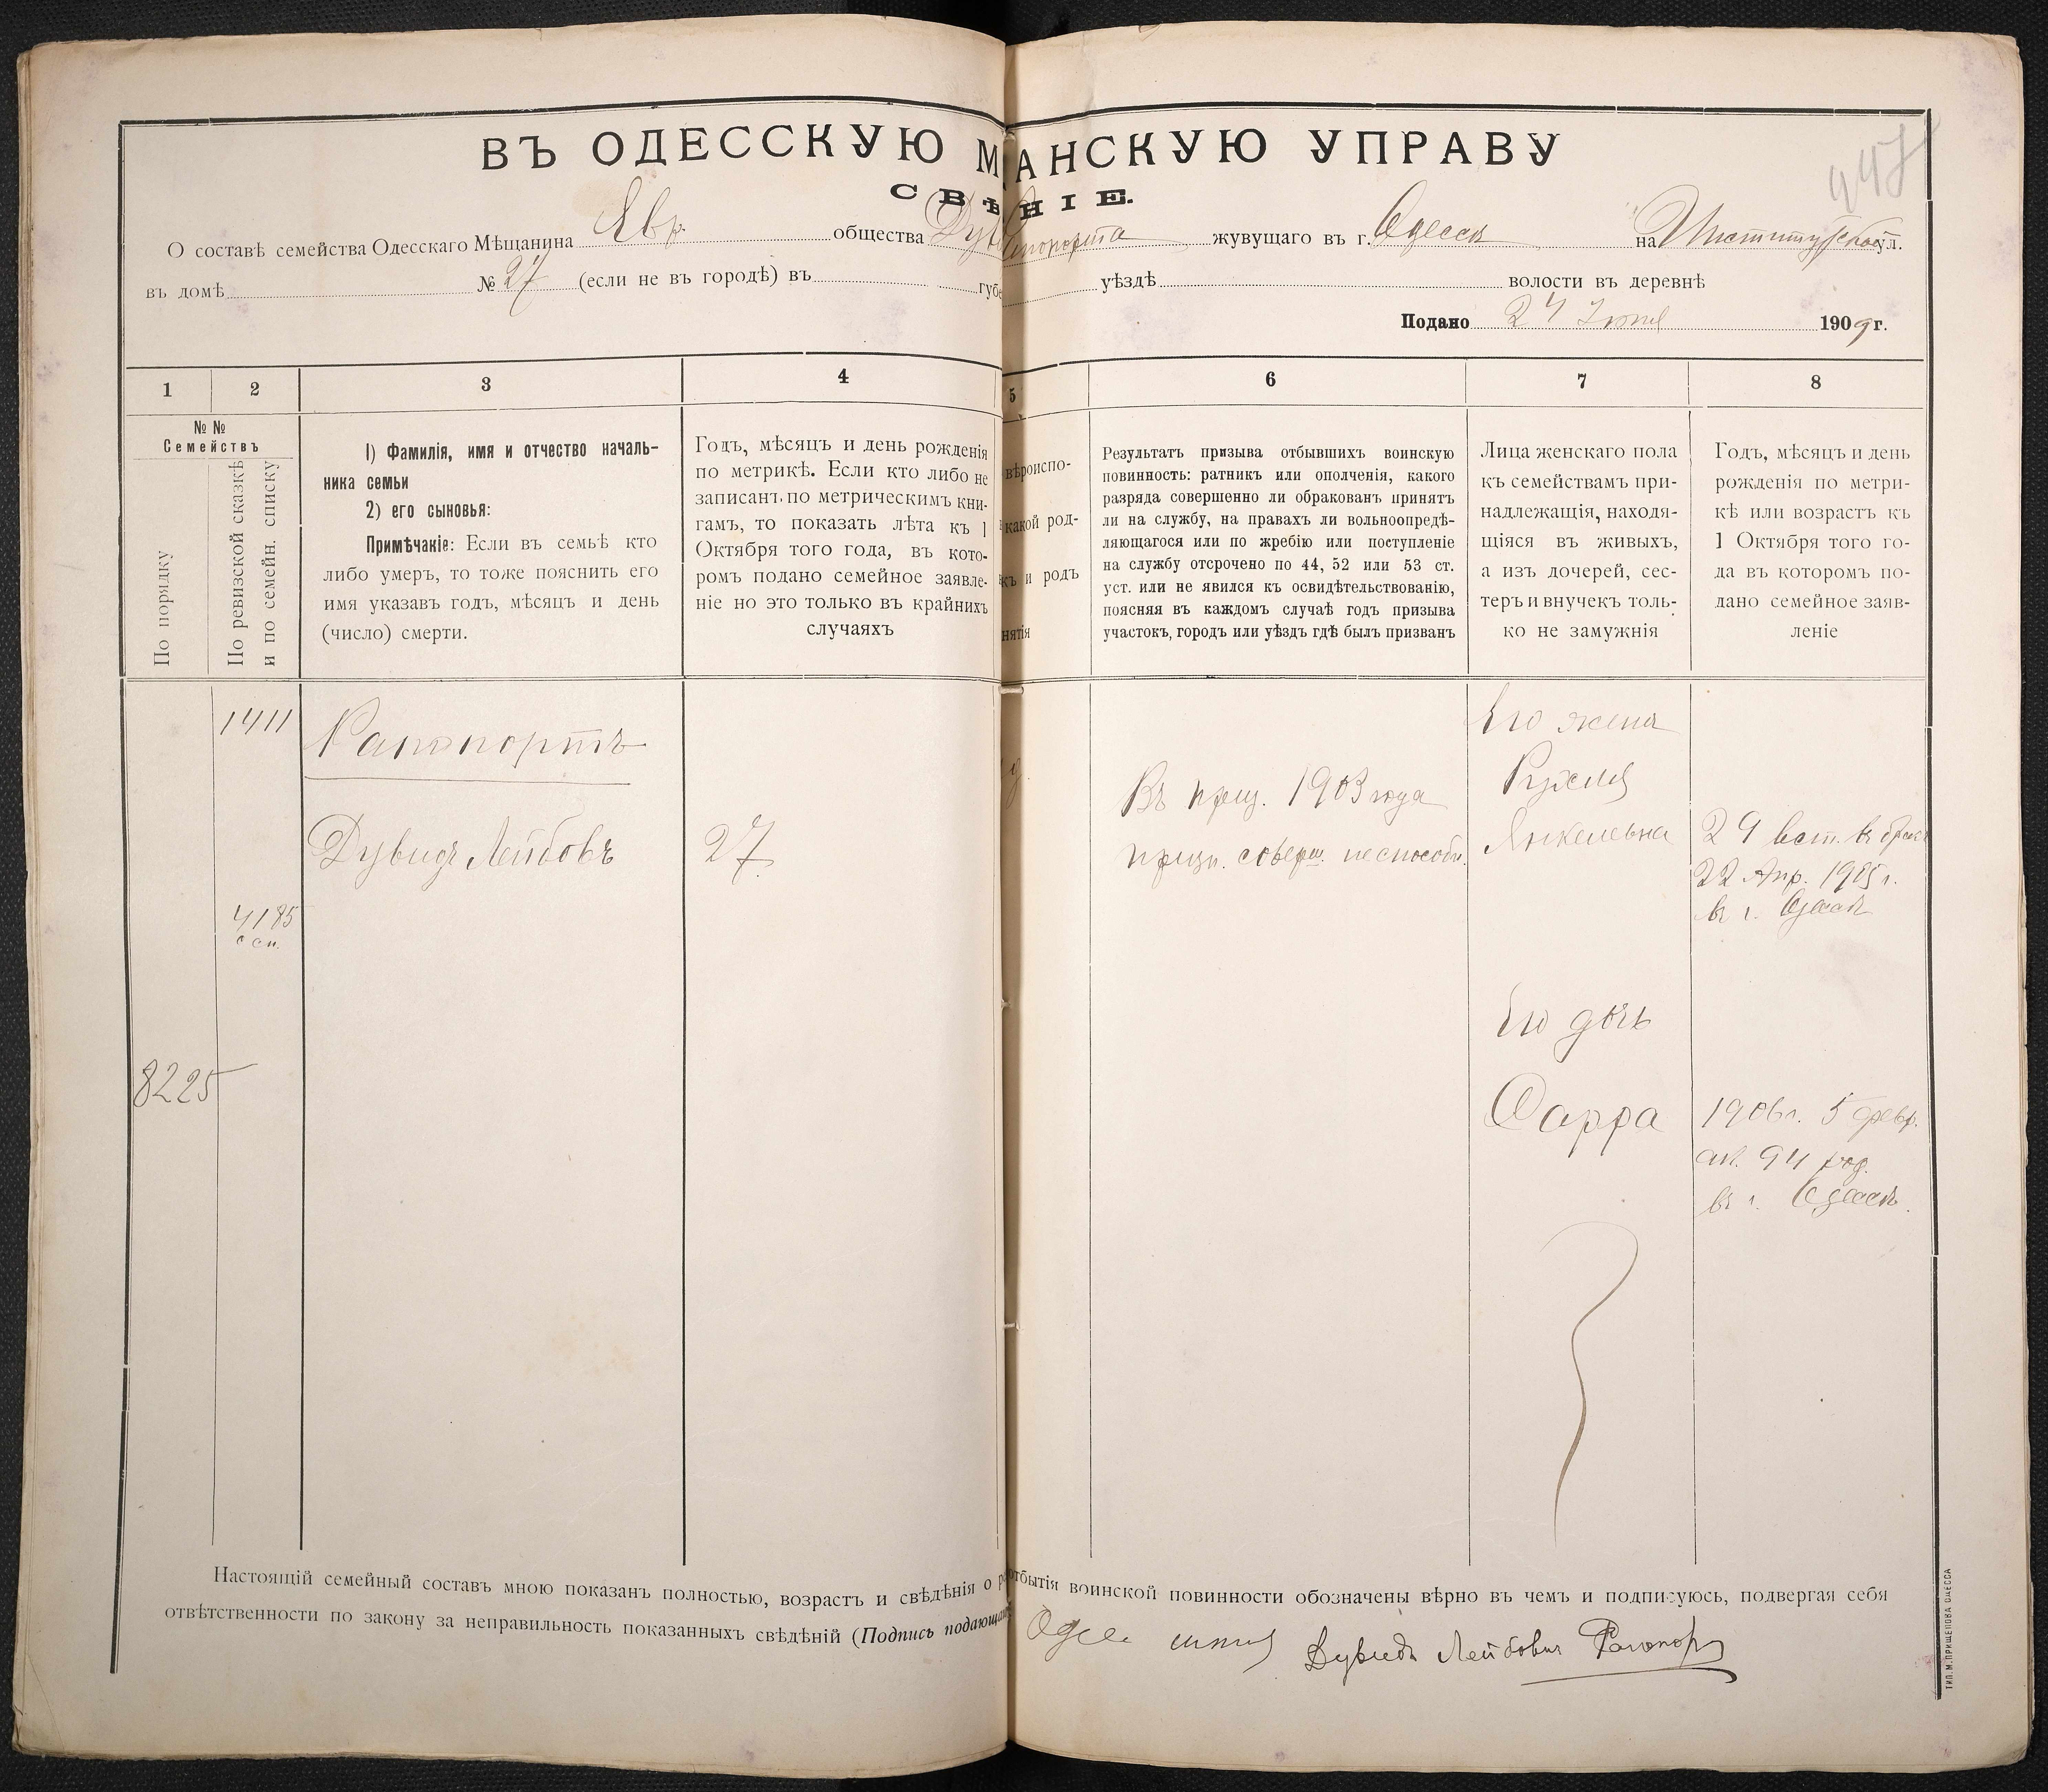 947
ВЪ ОДЕССКУЮ М АНСКУЮ УПРАВУ
СВѢ НІЕ.
О составѣ семейства Одесскаго Мѣщанина Евр. общества Дув апопорта жувущаго въ г. Одессѣ на Институтской ул.
въ домѣ № 27 (если не въ городѣ) въ губе уѣздѣ волости въ деревнѣ
Подано 24 1909 г.
1 2 3 4 5 6 7 8
№ №
Семействъ
По порядку
По ревизской сказкѣ
и по семейн. списку
1) Фамилія, имя и отчество началь-
ника семьи
2) его сыновья:
Примѣчакіе: Если въ семьѣ кто
либо умеръ, то тоже пояснить его
имя указавъ годъ, мѣсяцъ и день
(число) смерти.
Годъ, мѣсяцъ и день рожденія
по метрикѣ. Если кто либо не
записанъ по метрическимъ кни-
гамъ, то показать лѣта къ 1
Октября того года, въ кото-
ромъ подано семейное заявле-
ніе но это только въ крайнихъ
случаяхъ
вѣроиспо-
какой род-
къ и родъ
нятія
Результатъ призыва отбывшихъ воинскую
повинность: ратникъ или ополченія, какого
разряда совершенно ли обракованъ принятъ
ли на службу, на правахъ ли вольноопредѣ-
ляющагося или по жребію или поступленіе
на службу отсрочено по 44, 52 или 53 ст.
уст. или не явился къ освидѣтельствованію,
поясняя въ каждомъ случаѣ годъ призыва
участокъ, городъ или уѣздъ гдѣ былъ призванъ
Лица женскаго пола
къ семействамъ при-
надлежащія, находя-
щіяся въ живыхъ,
а изъ дочерей, сес-
теръ и внучекъ толь-
ко не замужнія
Годъ, мѣсяцъ и день
рожденія по метри-
кѣ или возрастъ къ
1 Октября того го-
да въ которомъ по-
дано семейное заяв-
леніе
1411
Рапопортъ
Дувидъ Лейбовъ
27
4185
с сп.
8225
Въ приз. 1903 года
призн. соверш. неспособн.
Его жена
Рухля
Янкелевна
29 вст. въ бракъ
22 Апр. 1905 г.
въ г. Одессѣ
Его дочь
Сарра
1906 г. 5 февр.
акт. 94 род.
въ г. Одессѣ.
Настоящій семейный составъ мною показанъ полностью, возрастъ и свѣдѣнія о отбытія воинской повинности обозначены вѣрно въ чемъ и подписуюсь, подвергая себя
отвѣтственности по закону за неправильность показанныхъ свѣдѣній (Подпись подающа
Дувидъ Лейбовичъ Рапопор
ТИП. М. ПРИЩЕПОВА ОДЕССА